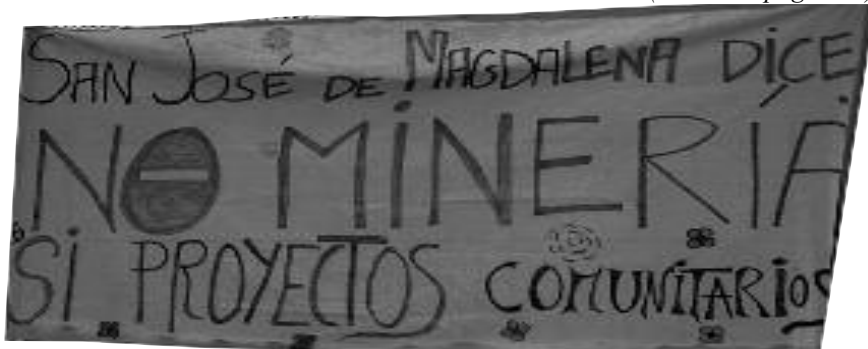 SAN JOSÉ DE MAGDALENA DICE
NO MINERÍA
SI PROYECTOS COMUNITARIOS